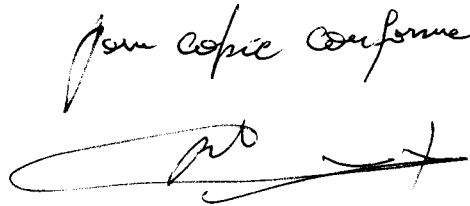 Pour copie conforme